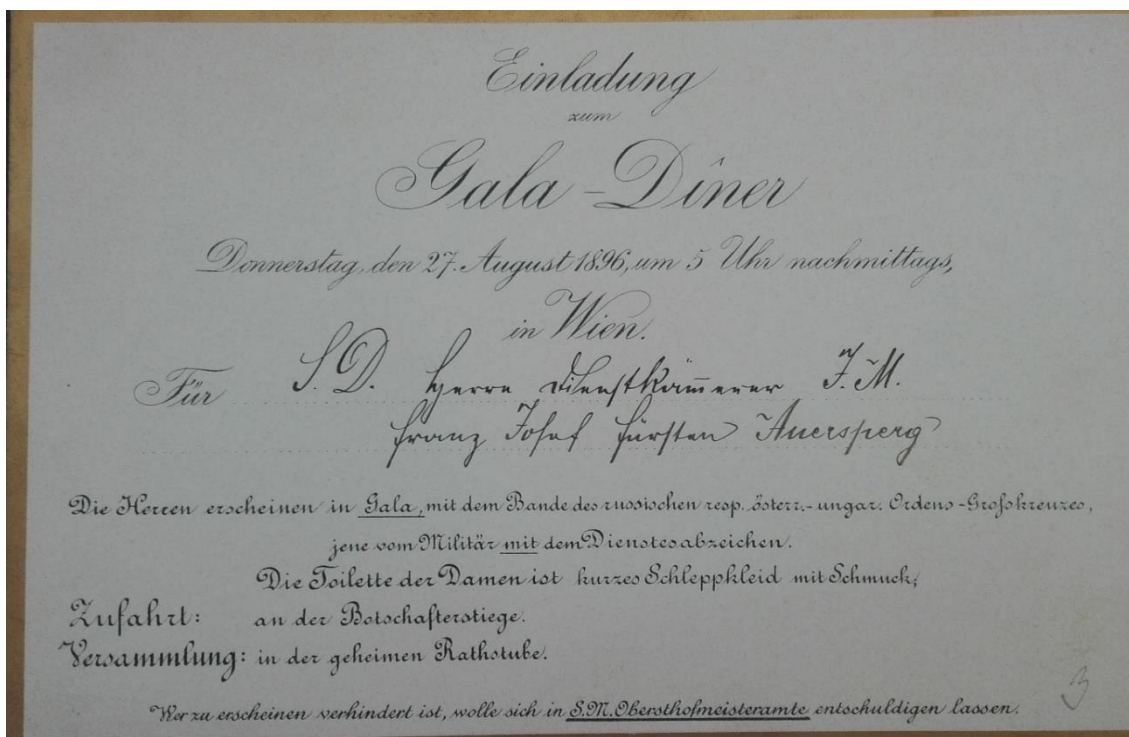 Einladung
zum
Gala-Dîner
Donnerstag, den 27. August 1896, um 5 Uhr nachmittags,
in Wien.
Für S. D. Herrn Dienstkäm̅erer J. M.
Franz Josef Fürsten Auersperg
Die Herren erscheinen in Gala, mit dem Bande des russischen resp. österr.-ungar. Ordens-Großkreuzes,
jene vom Militär mit dem Dienstesabzeichen.
Die Toilette der Damen ist kurzes Schleppkleid mit Schmuck,
Zufahrt: an der Botschafterstiege.
Versammlung: in der geheimen Rathstube.
Wer zu erscheinen verhindert ist, wolle sich in S.M. Obersthofmeisteramte entschuldigen lassen.
3